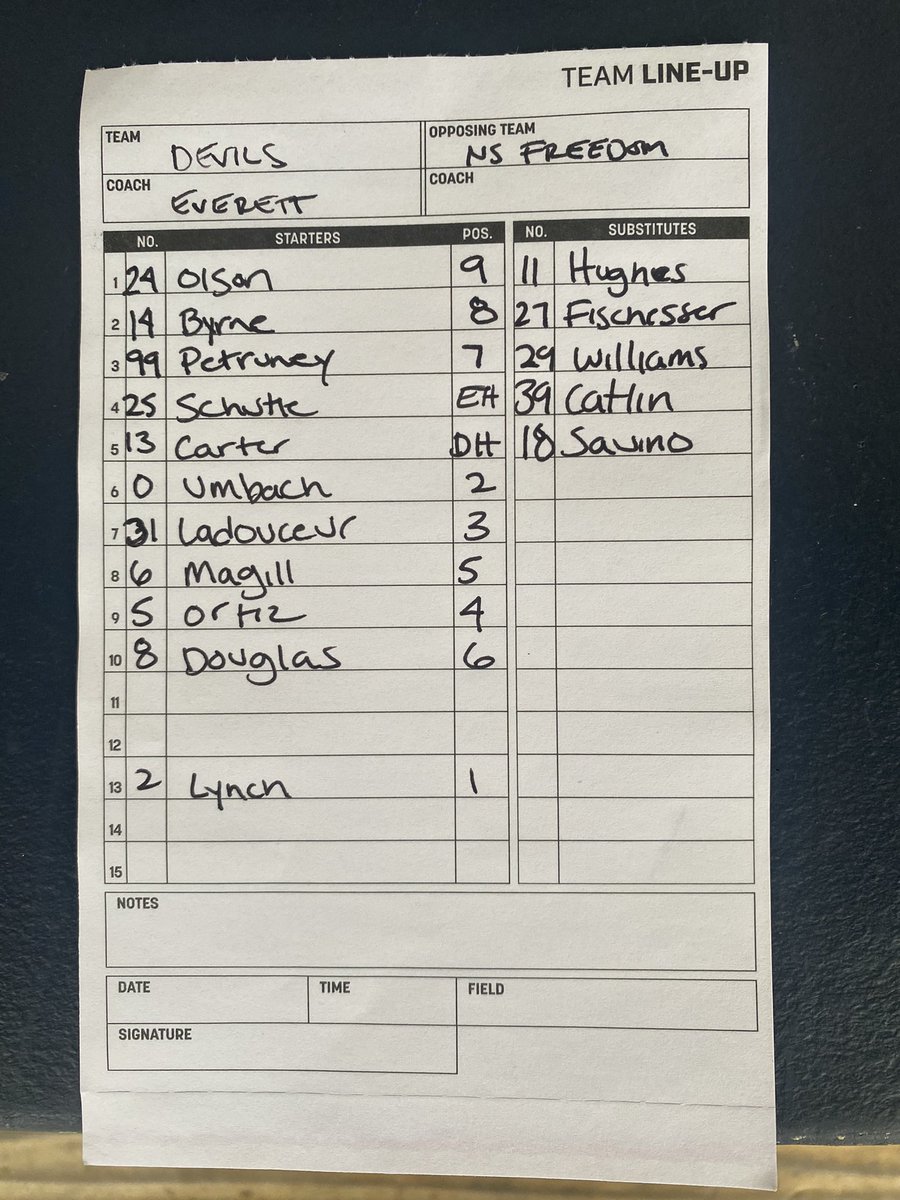 TEAM LINE-UP
TEAM DEVILS OPPOSING TEAM NS FREEDOM
COACH EVERETT COACH
NO. STARTERS POS. NO. SUBSTITUTES
1 24 Olson 9 11 Hughes
2 14 Byrne 8 27 Fischesser
3 99 Petruney 7 29 Williams
4 25 Schutte EH 39 Catlin
5 13 Carter DH 18 Savino
6 0 Umbach 2
7 31 Ladouceur 3
8 6 Magill 5
9 5 Ortiz 4
10 8 Douglas 6
11
12
13 2 Lynch 1
14
15
NOTES
DATE TIME FIELD
SIGNATURE